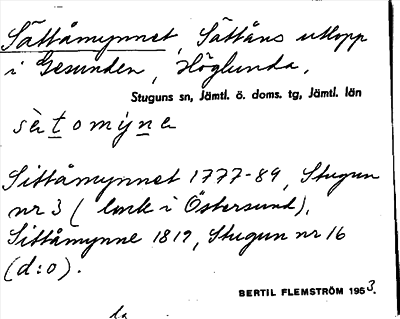 Sättåmynnet, Sättåns utlopp
i Gesunden, Höglunda,
Stuguns sn, Jämtl. ö. doms. tg, Jämtl. län
sètomỳne
Sittåmynnet 1777-89, Stugun
nr 3 (lmk i Östersund),
Sittåmynne 1819, Stugun nr 16
(d:o).
BERTIL FLEMSTRÖM 1953.